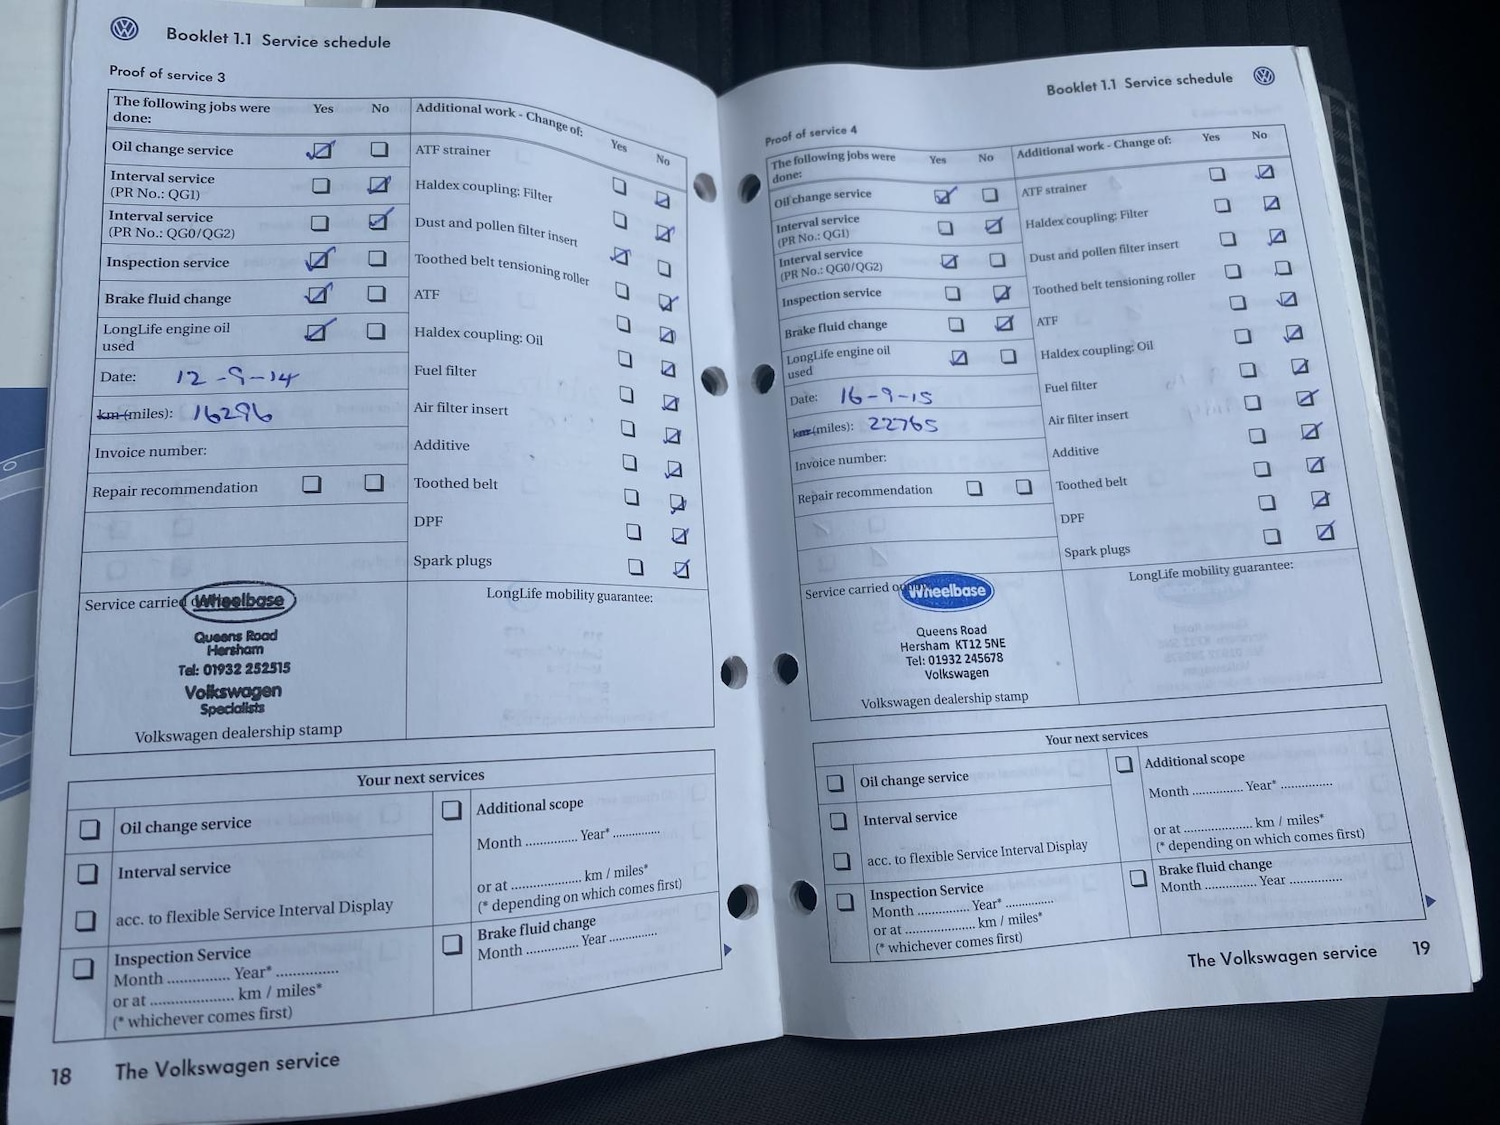 Booklet 1.1 Service schedule
Proof of service 3
The following jobs were done: Yes No
Oil change service
Interval service
(PR No.: QG1)
Interval service
(PR No.: QG0/QG2)
Inspection service
Brake fluid change
LongLife engine oil
used
Date: 12-9-14
km (miles): 16296
Invoice number:
Repair recommendation
Additional work - Change of: Yes No
ATF strainer
Haldex coupling: Filter
Dust and pollen filter insert
Toothed belt tensioning roller
ATF
Haldex coupling: Oil
Fuel filter
Air filter insert
Additive
Toothed belt
DPF
Spark plugs
Service carried
Wheelbase
Queens Road
Hersham
Tel: 01932 252515
Volkswagen
Specialists
Volkswagen dealership stamp
LongLife mobility guarantee:
Your next services
Oil change service
Interval service
acc. to flexible Service Interval Display
Inspection Service
Month .............. Year* ..............
or at .................... km / miles*
(* whichever comes first)
Additional scope
Month .......... Year* .............
or at .................. km / miles*
(* depending on which comes first)
Brake fluid change
Month ............. Year .............
18 The Volkswagen service
Booklet 1.1 Service schedule
Proof of service 4
The following jobs were
done: Yes No
Oil change service
Interval service
(PR No.: QG1)
Interval service
(PR No.: QG0/QG2)
Inspection service
Brake fluid change
LongLife engine oil
used
Date: 16-9-15
km (miles): 22765
Invoice number:
Repair recommendation
Additional work - Change of: Yes No
ATF strainer
Haldex coupling: Filter
Dust and pollen filter insert
Toothed belt tensioning roller
ATF
Haldex coupling: Oil
Fuel filter
Air filter insert
Additive
Toothed belt
DPF
Spark plugs
Service carried
Wheelbase
Queens Road
Hersham KT12 5NE
Tel: 01932 245678
Volkswagen
Volkswagen dealership stamp
LongLife mobility guarantee:
Your next services
Oil change service
Interval service
acc. to flexible Service Interval Display
Inspection Service
Month .............. Year* .............
or at .................... km / miles*
(* whichever comes first)
Additional scope
Month .............. Year* ..............
or at .................... km / miles*
(* depending on which comes first)
Brake fluid change
Month .............. Year ..............
The Volkswagen service 19